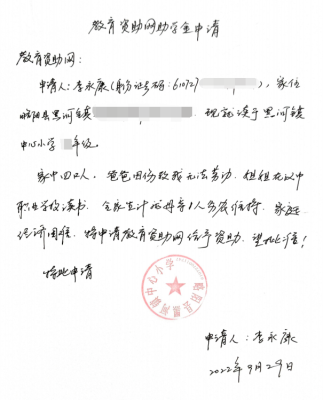 教育资助网助学金申请
教育资助网:
申请人:李永康(身份证号码:610727 ), 家住
略阳县黑河镇 , 现就读于黑河镇
中心小学 年级。
家中四口人, 爸爸因伤致残无法劳动, 姐姐在汉中
职业学校读书, 全家生计由母亲1人务农维持, 家庭
经济困难, 特申请教育资助网给予资助, 望批准!
特此申请
略阳县黑河镇中心小学
申请人:李永康
2022年9月29日